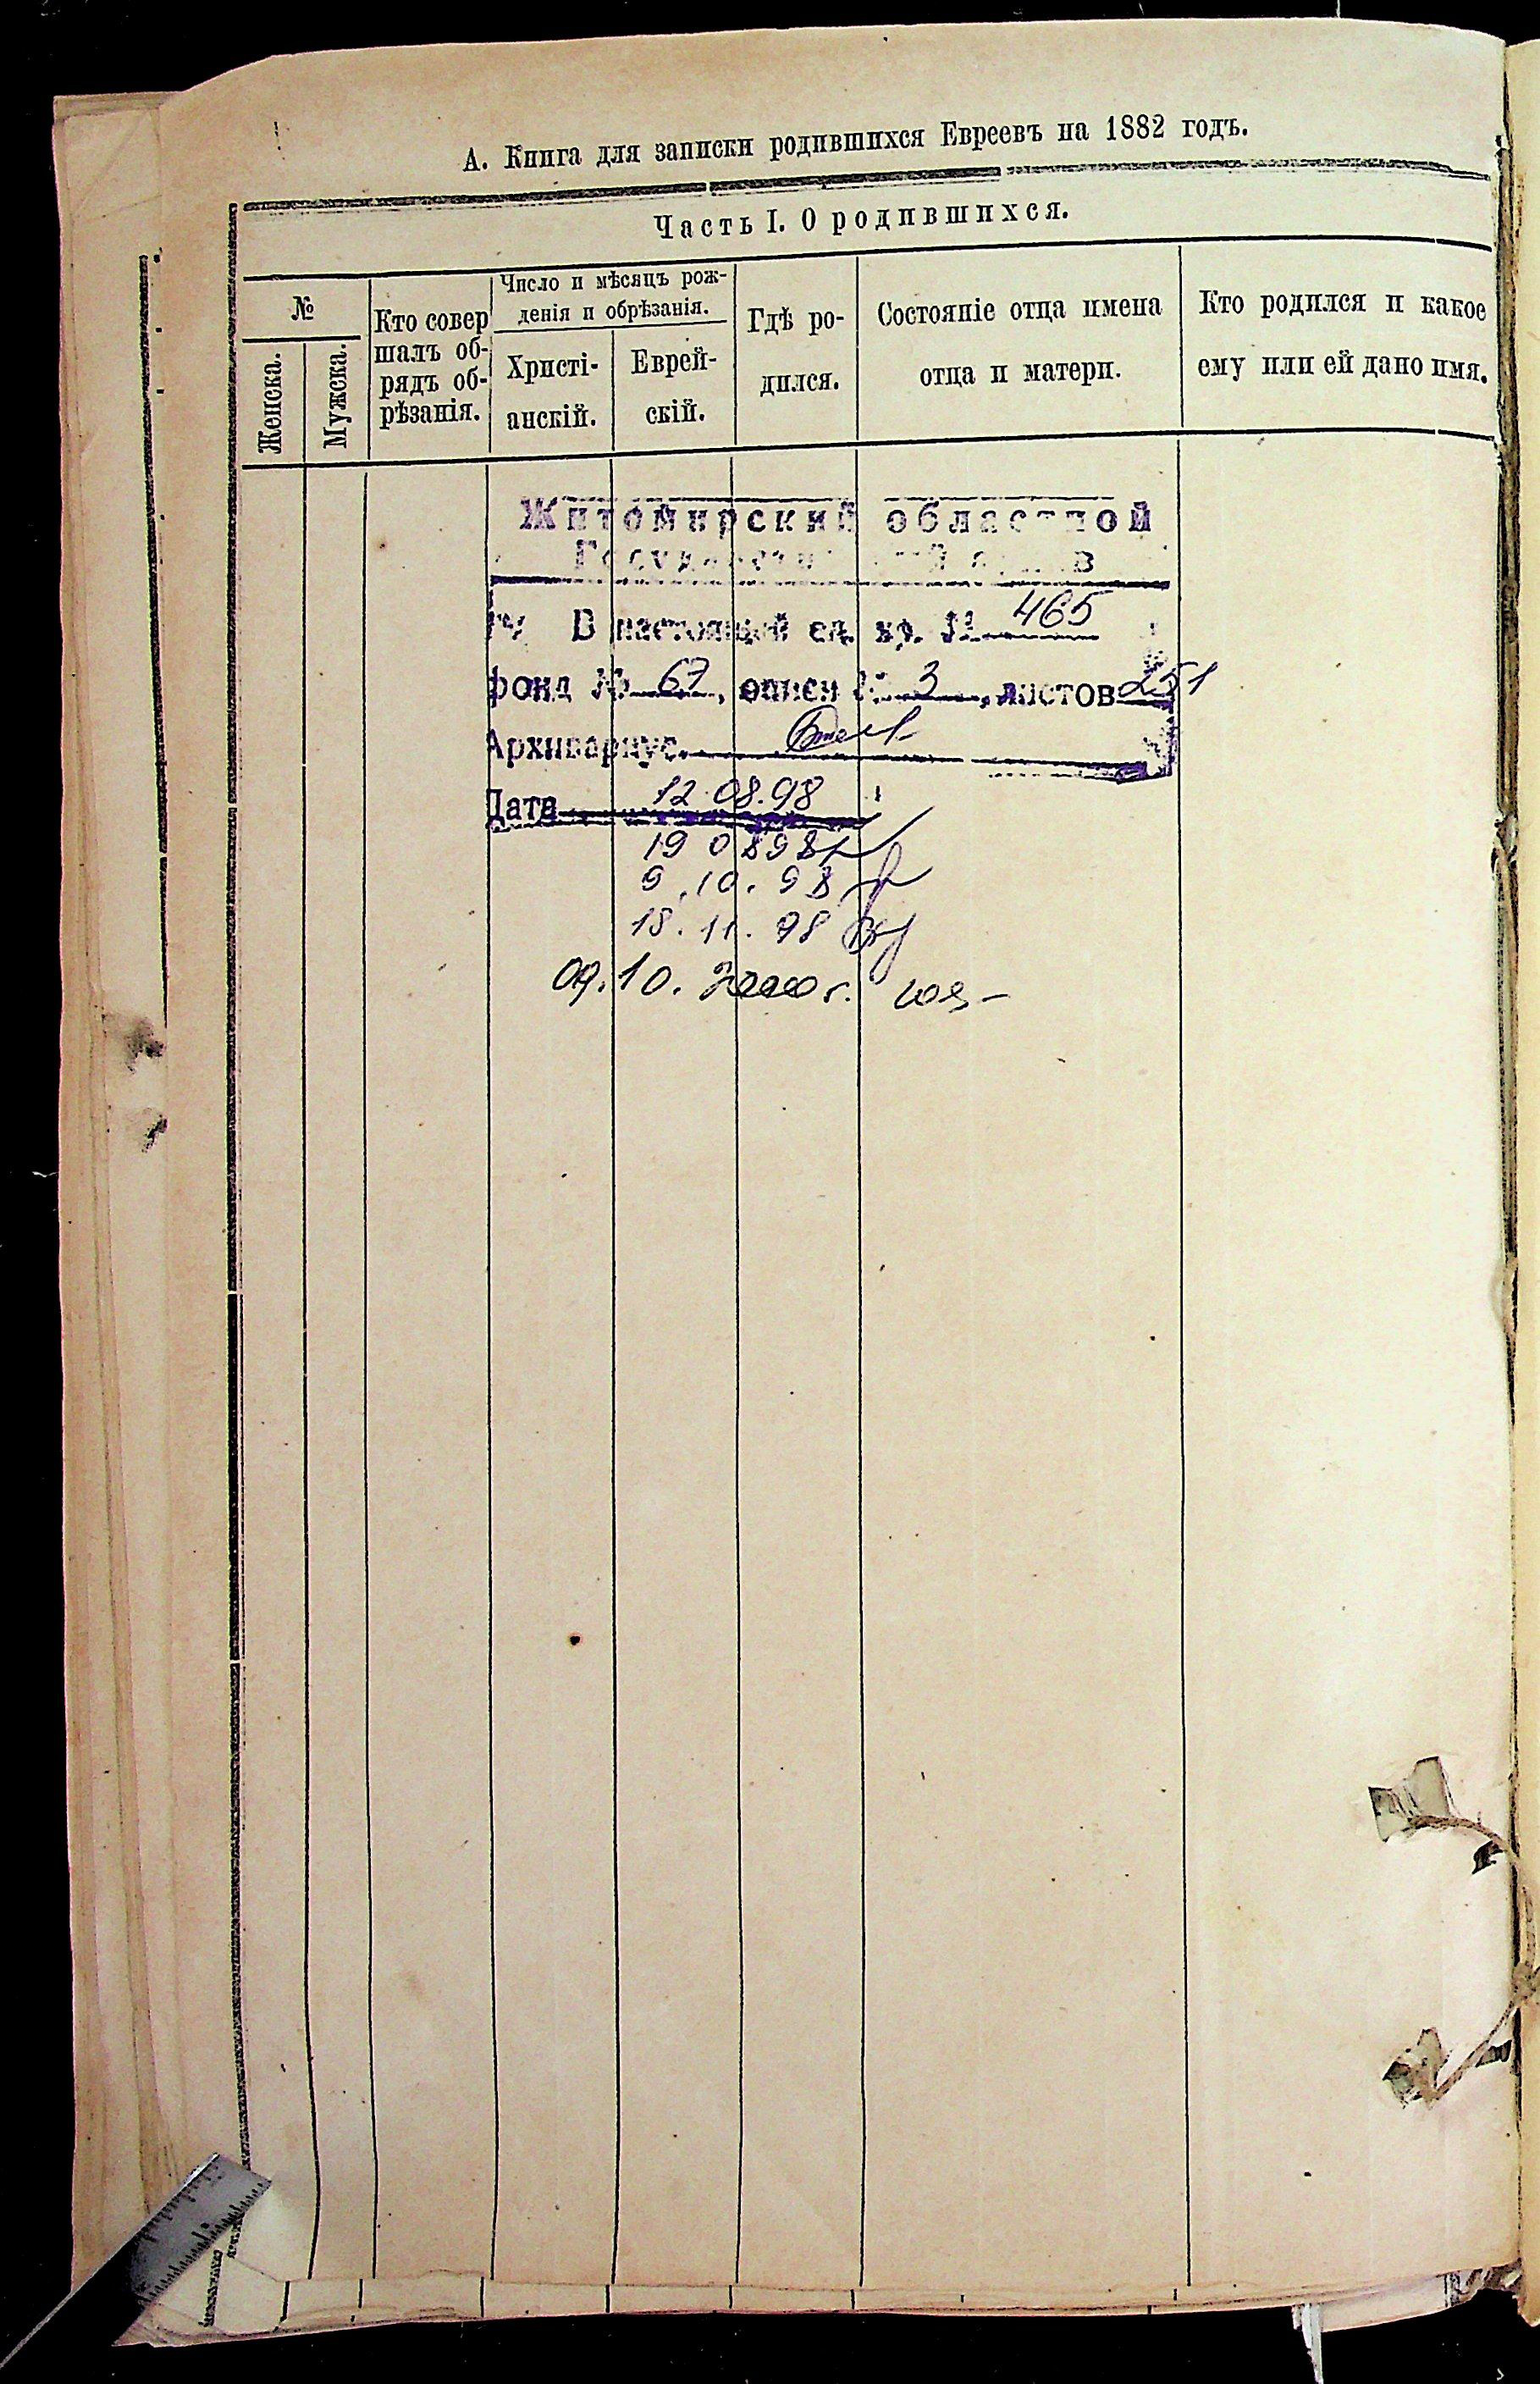 А. Книга для записки родившихся Евреевъ на 1882 годъ.
Часть I. О родившихся.
№
Женска.
Мужска.
Кто совер
шалъ об-
рядъ об-
рѣзанія.
Число и мѣсяцъ рож-
денія и обрѣзанія.
Христі-
анскій.
Еврей-
скій.
Гдѣ ро-
дился.
Состояніе отца имена
отца и матери.
Кто родился и какое
ему или ей дано имя.
Житомирский областной
Государственный архив
В настоящей ед. хр. № 465
фонд № 67, описи № 3, листов 251
Архивариус
Дата 12.08.98
19 08 98
9.10.98
18.11.98
09.10.2000 г.